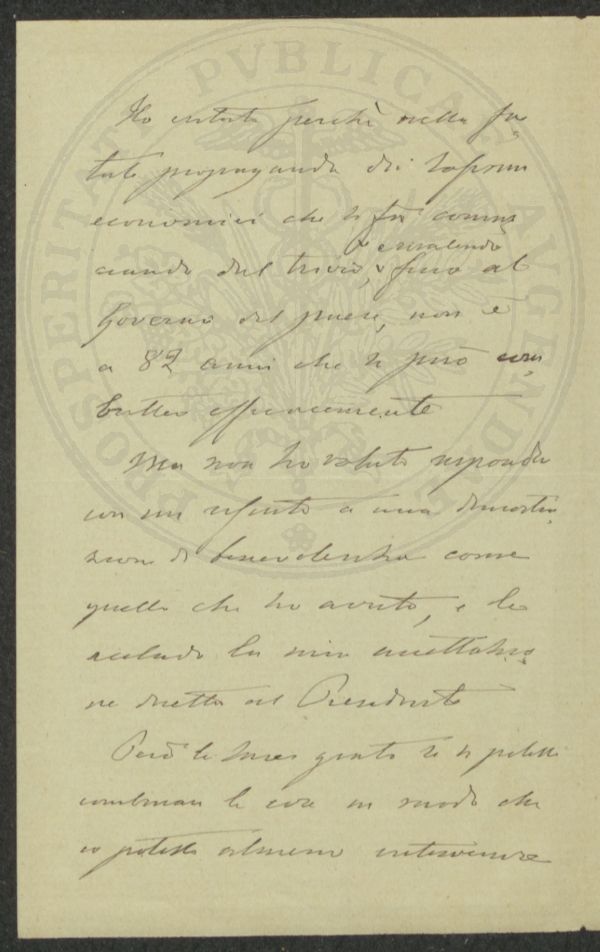 PROSPERITATI PVBLICAE AVGENDAE
Ho esitato perchè nella fa-
tale propaganda di
economici che si fa comin-
ciando dal trivio, e risalendo fino al
Governo del paese, non è
a 82 anni che si può com-
battere efficacemente
Ma non ho voluto rispondere
con un rifiuto a una dimostra-
zione di benevolenza come
quella che ho avuto, e le
accludo la mia accettazio-
ne diretta al Presidente
Però le sarei grato se si potesse
combinare le cose in modo che
io potessi almeno intervenire